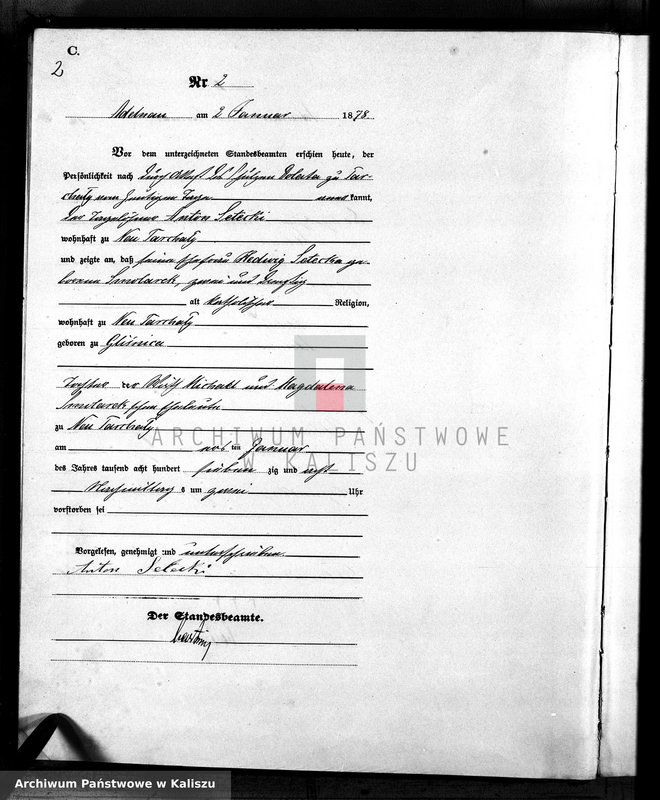 C.
2
Nr 2
Adelnau am 2 Januar 1878
Vor dem unterzeichneten Standesbeamten erschien heute, der
Persönlichkeit nach durch Attest des Schulzen zu Tar-
chaly vom heutigen Tage kannt,
der Tagelöhner Anton Selecki
wohnhaft zu Neu Tarchaly
und zeigte an, daß seine Ehefrau Hedwig Selecka ge-
borene Smolarek, zwei und dreyßig
alt katholischer Religion,
wohnhaft zu Neu Tarchaly
geboren zu Glisnica
Tochter der Michael und Magdalena
Smolarek Eheleute
zu Neu Tarchaly
am ten Januar
des Jahres tausend acht hundert sieben zig und acht
Nachmittags um zwei Uhr
verstorben sei
Vorgelesen, genehmigt und unterschrieben
Anton Selecki
Der Standesbeamte.
ARCHIWUM PAŃSTWOWE
W KALISZU
Archiwum Państwowe w Kaliszu